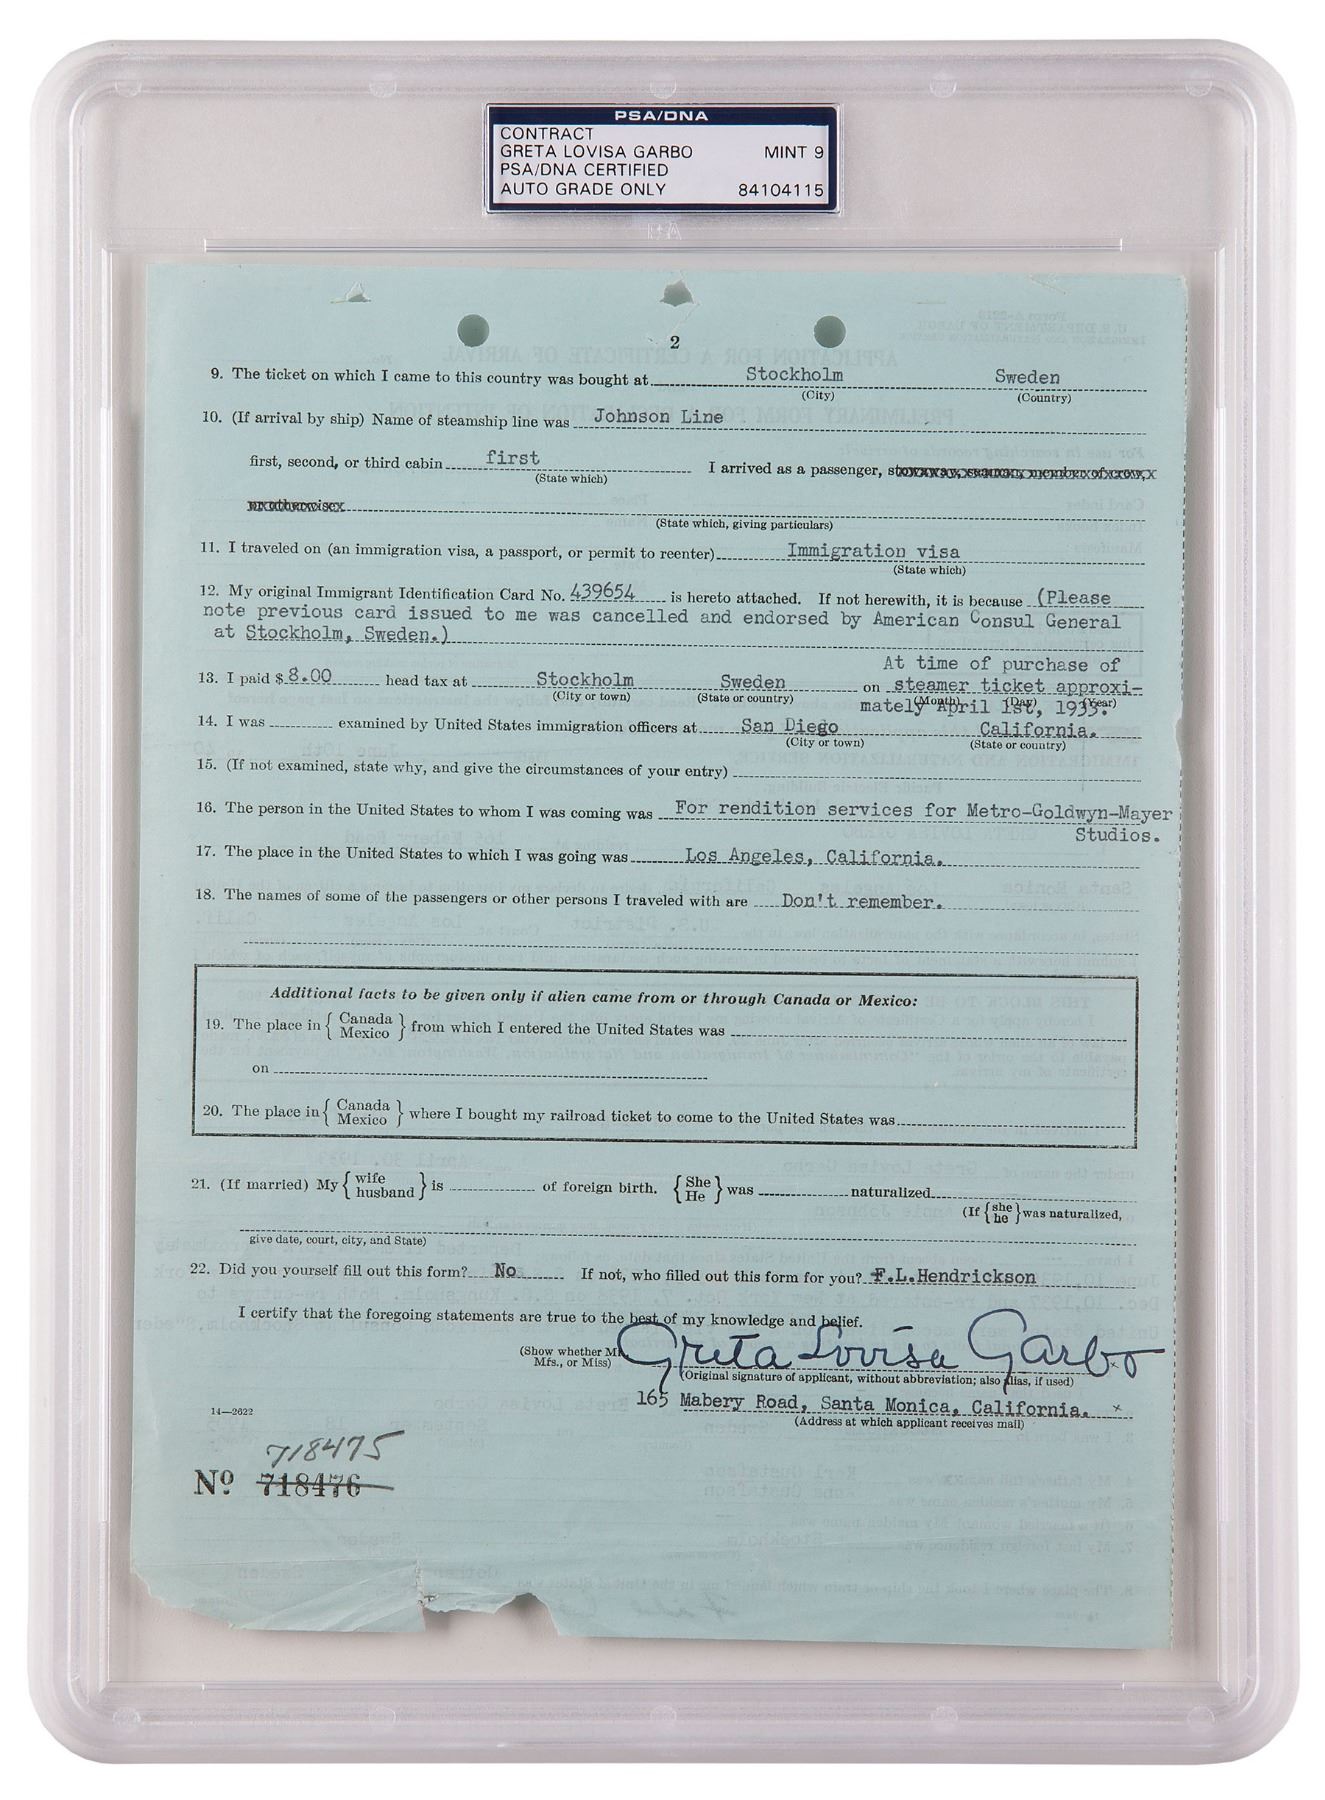 PSA/DNA
CONTRACT
GRETA LOVISA GARBO MINT 9
PSA/DNA CERTIFIED
AUTO GRADE ONLY 84104115
2
9. The ticket on which I came to this country was bought at Stockholm Sweden
(City) (Country)
10. (If arrival by ship) Name of steamship line was Johnson Line
first, second, or third cabin first I arrived as a passenger, stowaway, seaman, member of crew,
(State which)
or otherwise
(State which, giving particulars)
11. I traveled on (an immigration visa, a passport, or permit to reenter) Immigration visa
(State which)
12. My original Immigrant Identification Card No. 439654 is hereto attached. If not herewith, it is because (Please
note previous card issued to me was cancelled and endorsed by American Consul General
at Stockholm, Sweden.)
At time of purchase of
13. I paid $ 8.00 head tax at Stockholm Sweden on steamer ticket approxi-
(City or town) (State or country) (Month) (Day) (Year)
mately April 1st, 1933.
14. I was examined by United States immigration officers at San Diego California.
(City or town) (State or country)
15. (If not examined, state why, and give the circumstances of your entry)
16. The person in the United States to whom I was coming was For rendition services for Metro-Goldwyn-Mayer
Studios.
17. The place in the United States to which I was going was Los Angeles, California.
18. The names of some of the passengers or other persons I traveled with are Don't remember.
Additional facts to be given only if alien came from or through Canada or Mexico:
19. The place in { Canada Mexico } from which I entered the United States was
on
20. The place in { Canada Mexico } where I bought my railroad ticket to come to the United States was
21. (If married) My { wife husband } is of foreign birth. { She He } was naturalized
(If { she he } was naturalized,
give date, court, city, and State)
22. Did you yourself fill out this form? No If not, who filled out this form for you? F.L.Hendrickson
I certify that the foregoing statements are true to the best of my knowledge and belief.
(Show whether Mr.
Mrs., or Miss) Greta Lovisa Garbo x
(Original signature of applicant, without abbreviation; also alias, if used)
165 Mabery Road, Santa Monica, California. x
(Address at which applicant receives mail)
14—2622
718475
Nº 718476